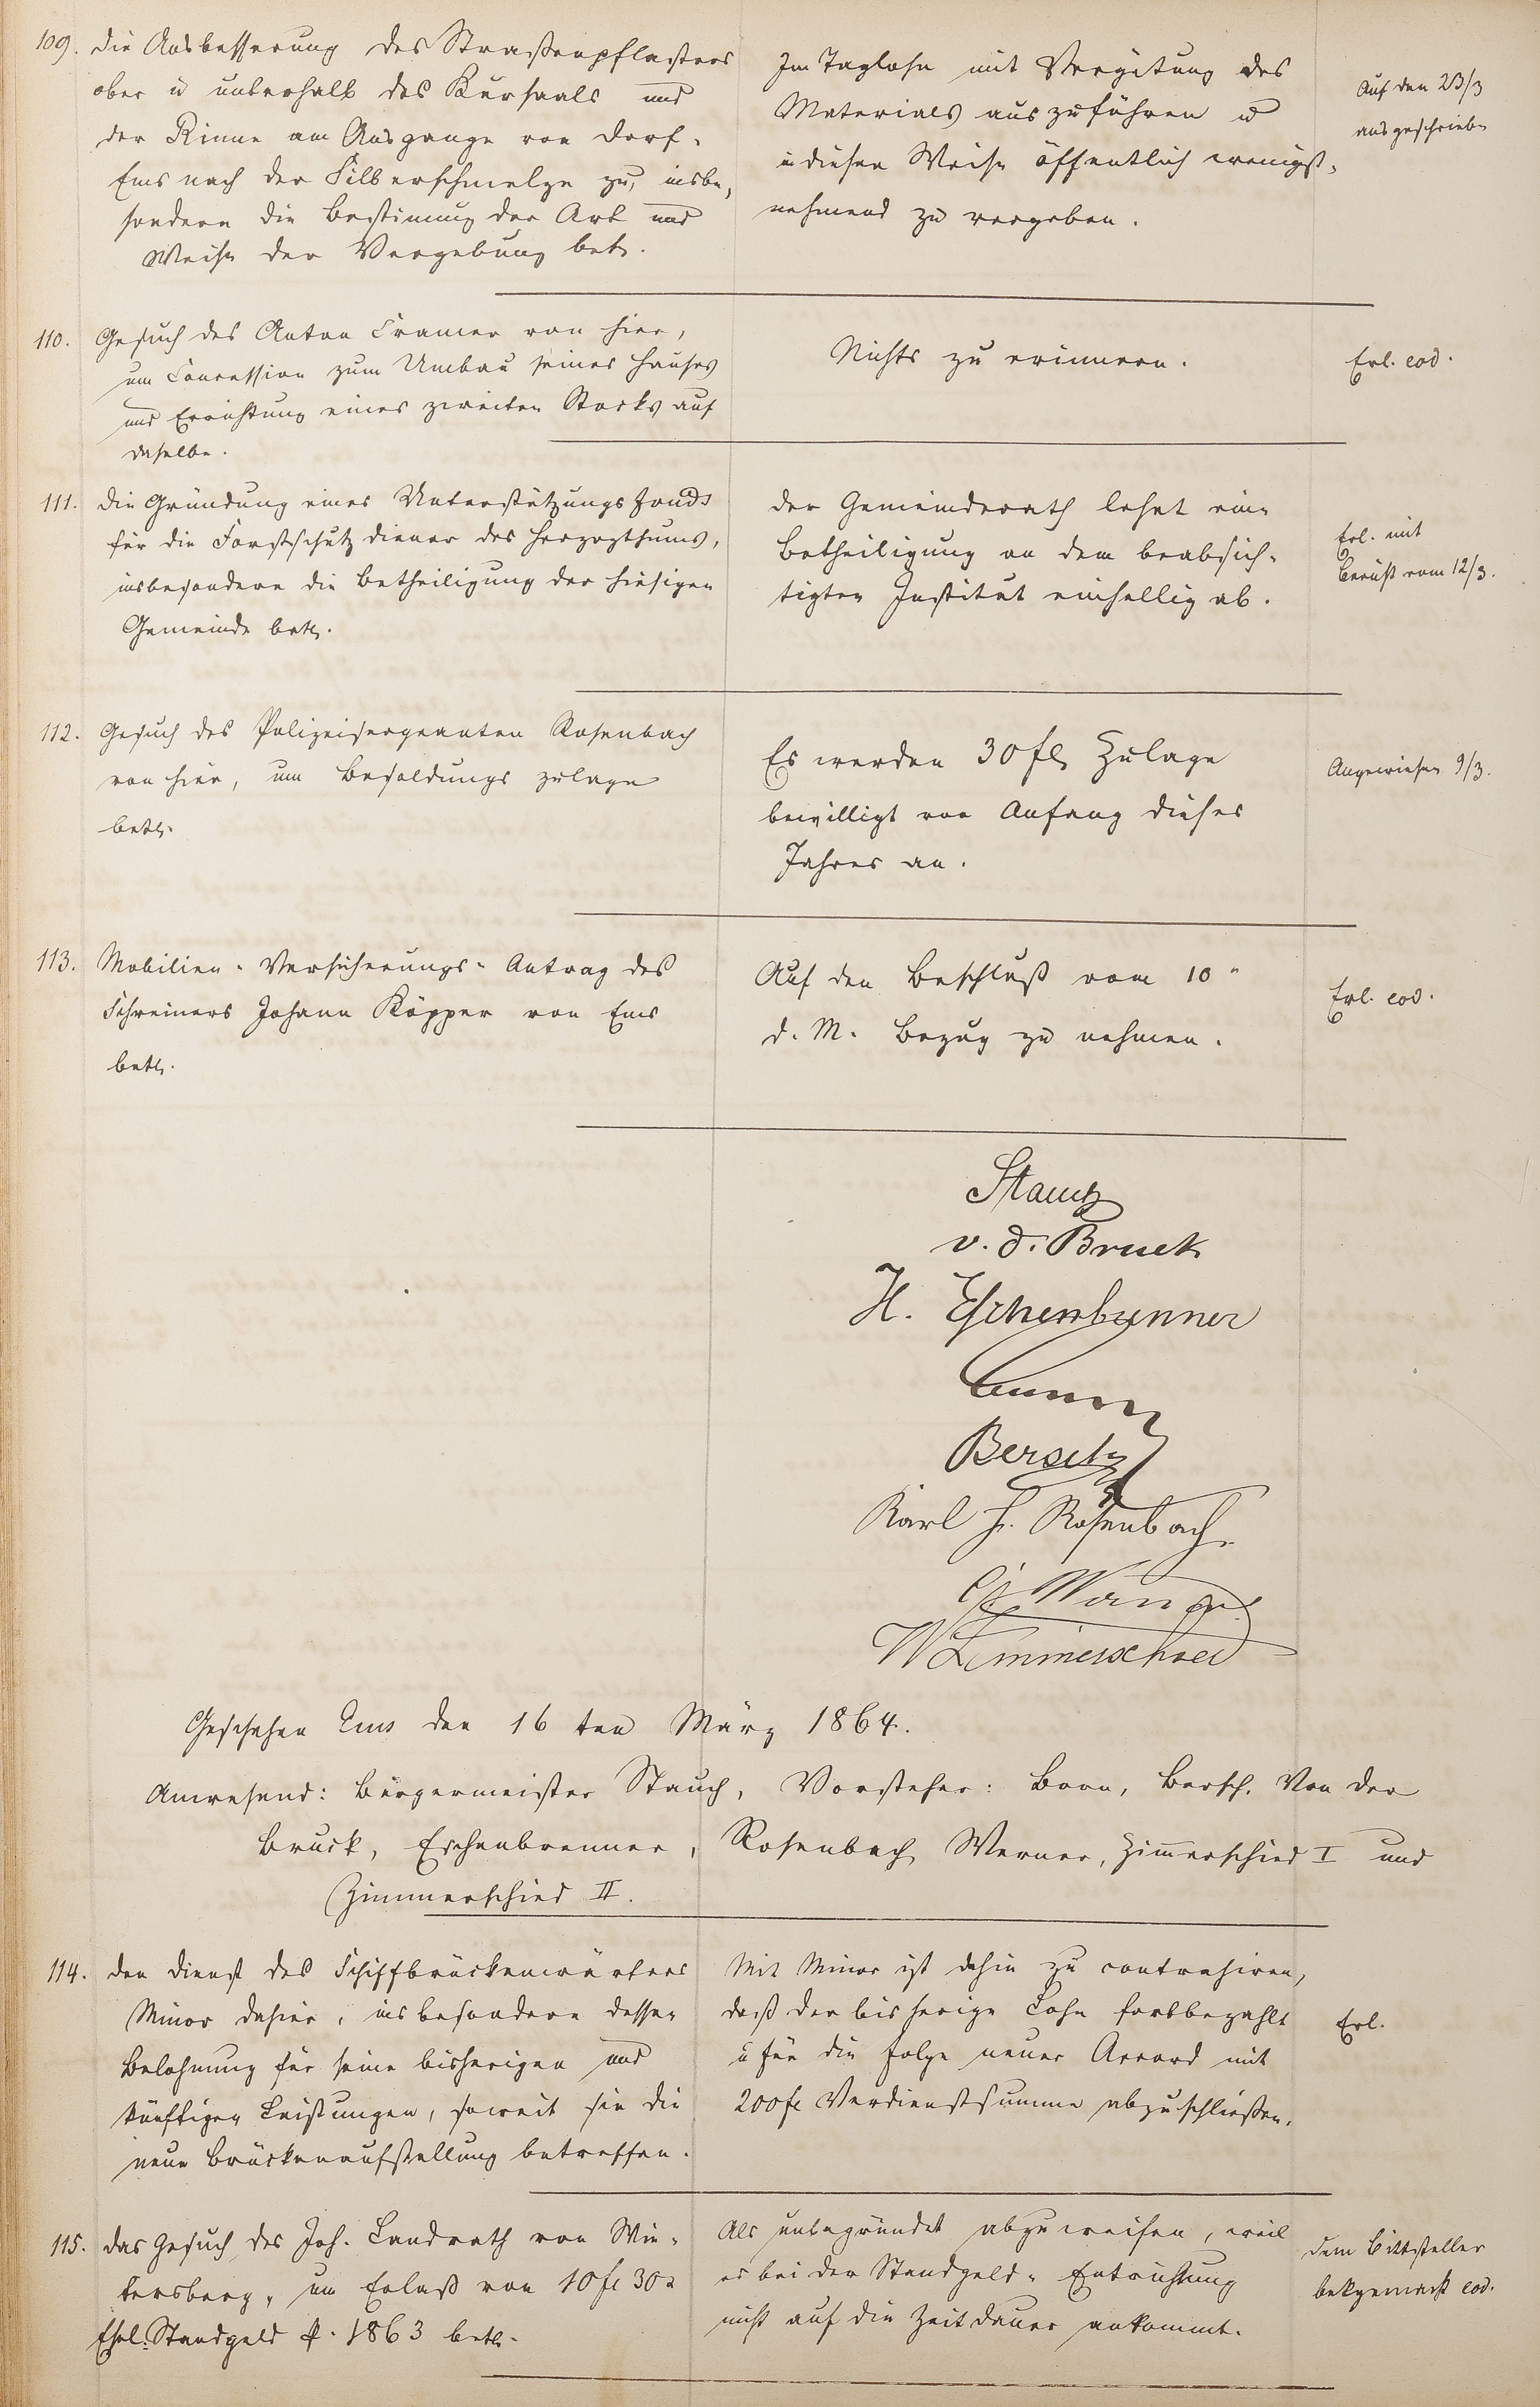 109. Die Ausbesserung des Straßenpflasters
ober u unterhalb des Kursaals und
der Rinne am Ausgange von Dorf-
Ems nach der Silberschmelze zu, insbe-
sondere die Bestimung der Art und
Weise der Vergebung betr.
Im Taglohn mit Vergütung des
Materials auszuführen u
in dieser Weise öffentlich wenigst-
nehmend zu vergeben.
Auf den 23/3
ausgeschrieben
110. Gesuch des Anton Cramer von hier,
um Concession zum Umbau seines Hauses
und Errichtung eines zweiten Stocks auf
daselbe.
Nichts zu erinnern.
Erl. eod.
111. Die Gründung eines Unterstützungsfonds
für die Forstschutzdiener des Herzogthums,
insbesondere die Betheiligung der hiesigen
Gemeinde betr.
Der Gemeinderath lehnt eine
Betheiligung an dem beabsich-
tigten Institut einhellig ab.
Erl. mit
Bericht vom 12/3.
112. Gesuch des Polizeisergeanten Rosenbach
von hier, um Besoldungszulage
betr.
Es werden 30 fl Zulage
bewilligt von Anfang dieses
Jahres an.
Angewiesen 9/3.
113. Mobilien-Versicherungs-Antrag des
Schreiners Johann Köpper von Ems
betr.
Auf den Beschluß vom 10"
d. M. Bezug zu nehmen.
Erl. eod.
Stauch
v. d. Bruck
H. Eschenbrenner
Bersch
Karl H. Rosenbach
W Zimmerschied
Geschehen Ems den 16ten März 1864.
Anwesend: Bürgermeister Stauch, Vorsteher: Born, Bersch, Von der
Bruck, Eschenbrenner, Rosenbach, Werner, Zimerschied I und
Zimmerschied II.
114. Den Dienst des Schiffbrückenwärters
Minor dahier, insbesondere dessen
Belohnung für seine bisherigen und
künftigen Leistungen, soweit sie die
neue Brückenaufstellung betreffen.
Mit Minor ist dahin zu contrahiren,
daß der bisherige Lohn fortbezahlt
u für die Folge neuer Accord mit
200 fl Verdienstsumme abzuschließen.
Erl.
115. Das Gesuch des Joh. Landrath von Win-
tersberg, um Erlaß von 10 fl 30 x
Esel-Standgeld p. 1863 betr.
Als unbegründet abzuweisen, weil
es bei der Standgeld-Entrichtung
nicht auf die Zeitdauer ankommt.
Dem Bittsteller
bektgemacht eod.